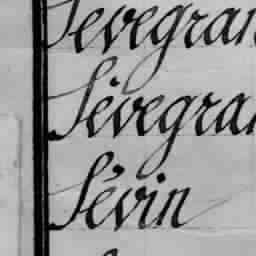 Sevegran
Sévegran
Sévin